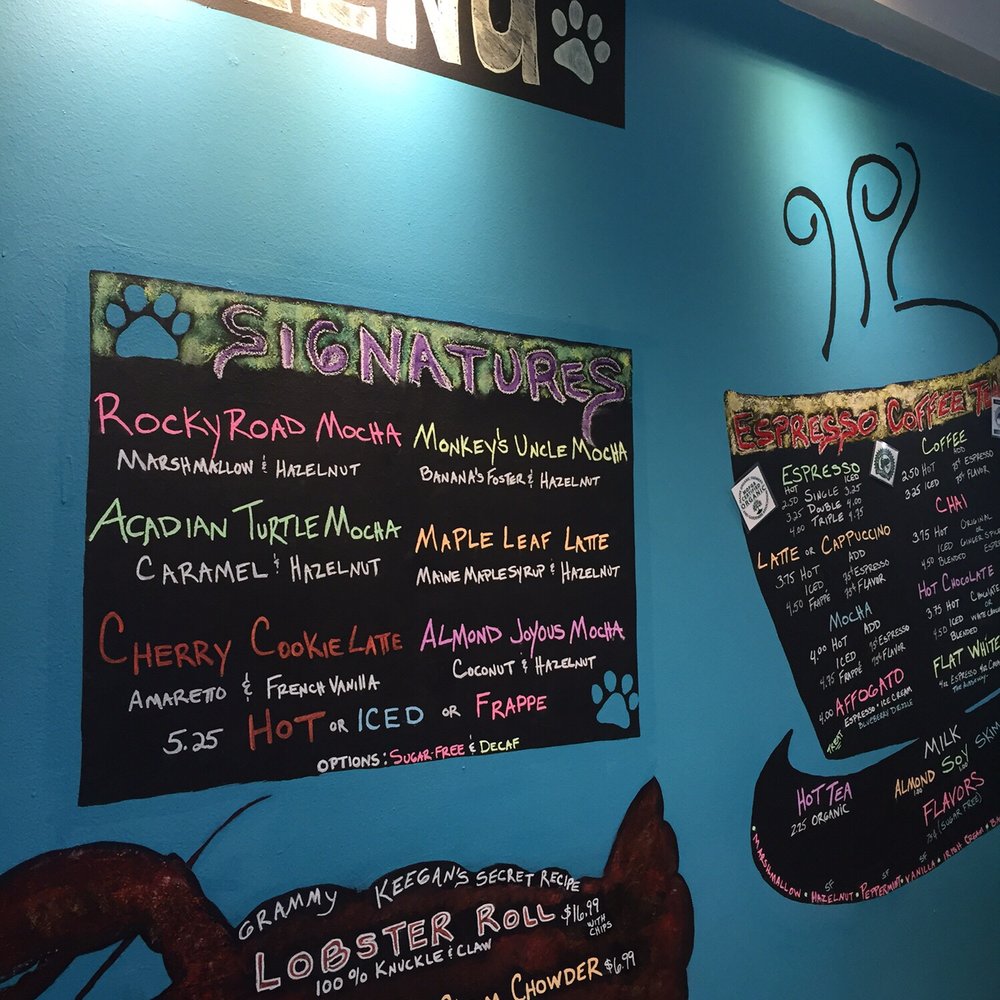 SIGNATURES
ROCKY ROAD MOCHA
MARSHMALLOW & HAZELNUT
MONKEY'S UNCLE MOCHA
BANANA'S FOSTER & HAZELNUT
ACADIAN TURTLE MOCHA
CARAMEL & HAZELNUT
MAPLE LEAF LATTE
MAINE MAPLE SYRUP & HAZELNUT
CHERRY COOKIE LATTE
AMARETTO & FRENCH VANILLA
ALMOND JOYOUS MOCHA
COCONUT & HAZELNUT
5.25 HOT OR ICED OR FRAPPE
OPTIONS: SUGAR-FREE & DECAF
GRAMMY KEEGAN'S SECRET RECIPE
LOBSTER ROLL $16.99
WITH CHIPS
100% KNUCKLE & CLAW
CHOWDER $6.99
ESPRESSO COFFEE
ESPRESSO
HOT ICED
2.50 SINGLE 3.25
3.25 DOUBLE 4.00
4.00 TRIPLE 4.75
LATTE OR CAPPUCCINO
3.75 HOT ADD
ICED 75¢ ESPRESSO
4.50 FRAPPE 75¢ FLAVOR
MOCHA
4.00 HOT ADD
ICED 75¢ ESPRESSO
4.75 FRAPPE 75¢ FLAVOR
4.00 AFFOGATO
TREAT ESPRESSO • ICE CREAM
BLUEBERRY DRIZZLE
COFFEE
2.50 HOT ADD
3.25 ICED 75¢ ESPRESSO
75¢ FLAVOR
CHAI
3.75 HOT ORIGINAL
ICED OR GINGER SPICE
4.50 BLENDED
HOT CHOCOLATE
3.75 HOT CHOCOLATE
OR
4.50 ICED
BLENDED
FLAT WHITE
4oz ESPRESSO
MILK
SKIM
ALMOND 1.00 SOY 1.00
HOT TEA
2.25 ORGANIC
FLAVORS
75¢ (SUGAR FREE)
SF SF
• MARSHMALLOW • HAZELNUT • PEPPERMINT • VANILLA • IRISH CREAM •